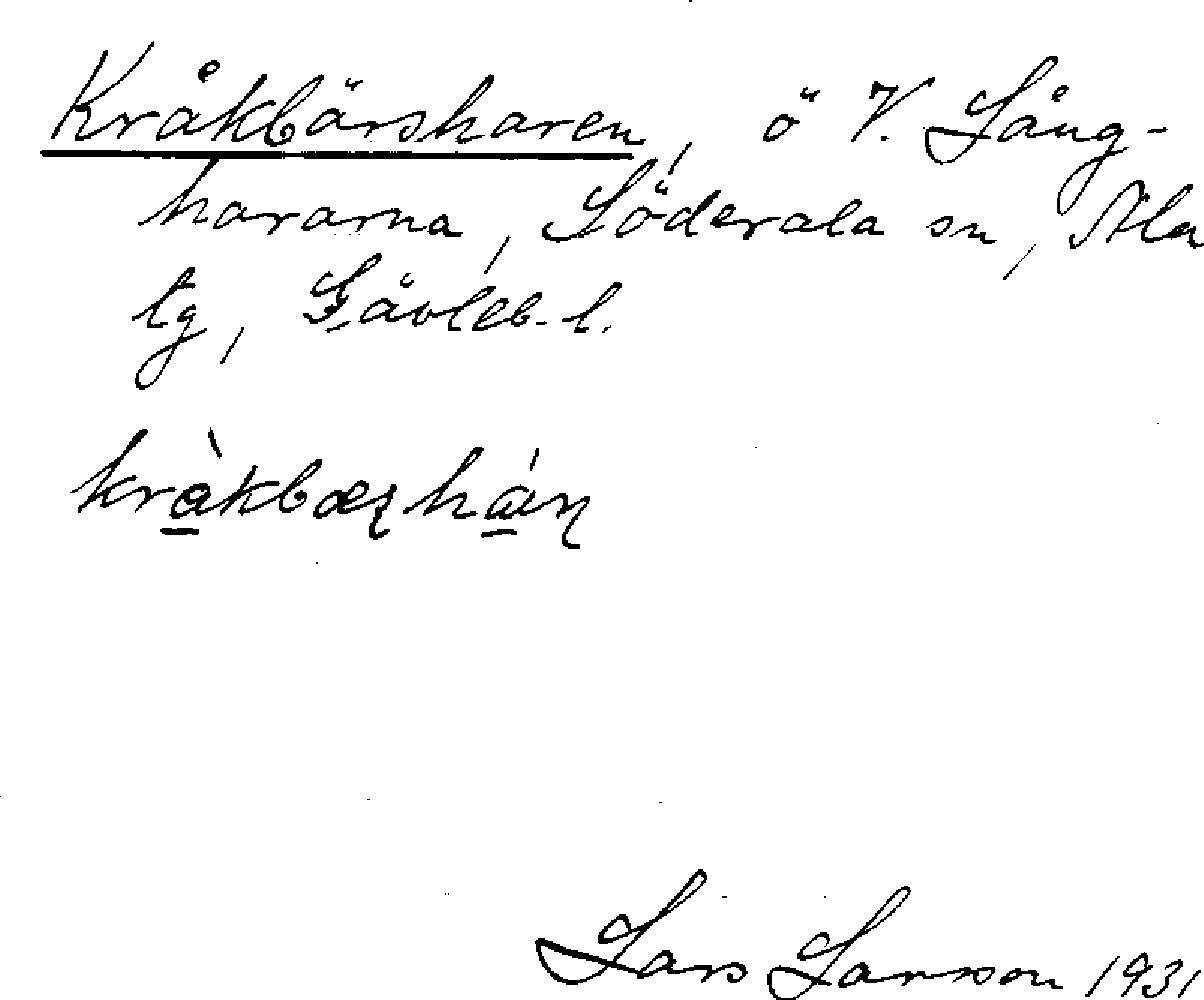 Kråkbärsharen, ö V. Lång-
hararna, Söderala sn, Ala
tg, Gävleb. l.
kràkbæʂháɳ
Lars Larsson 1931